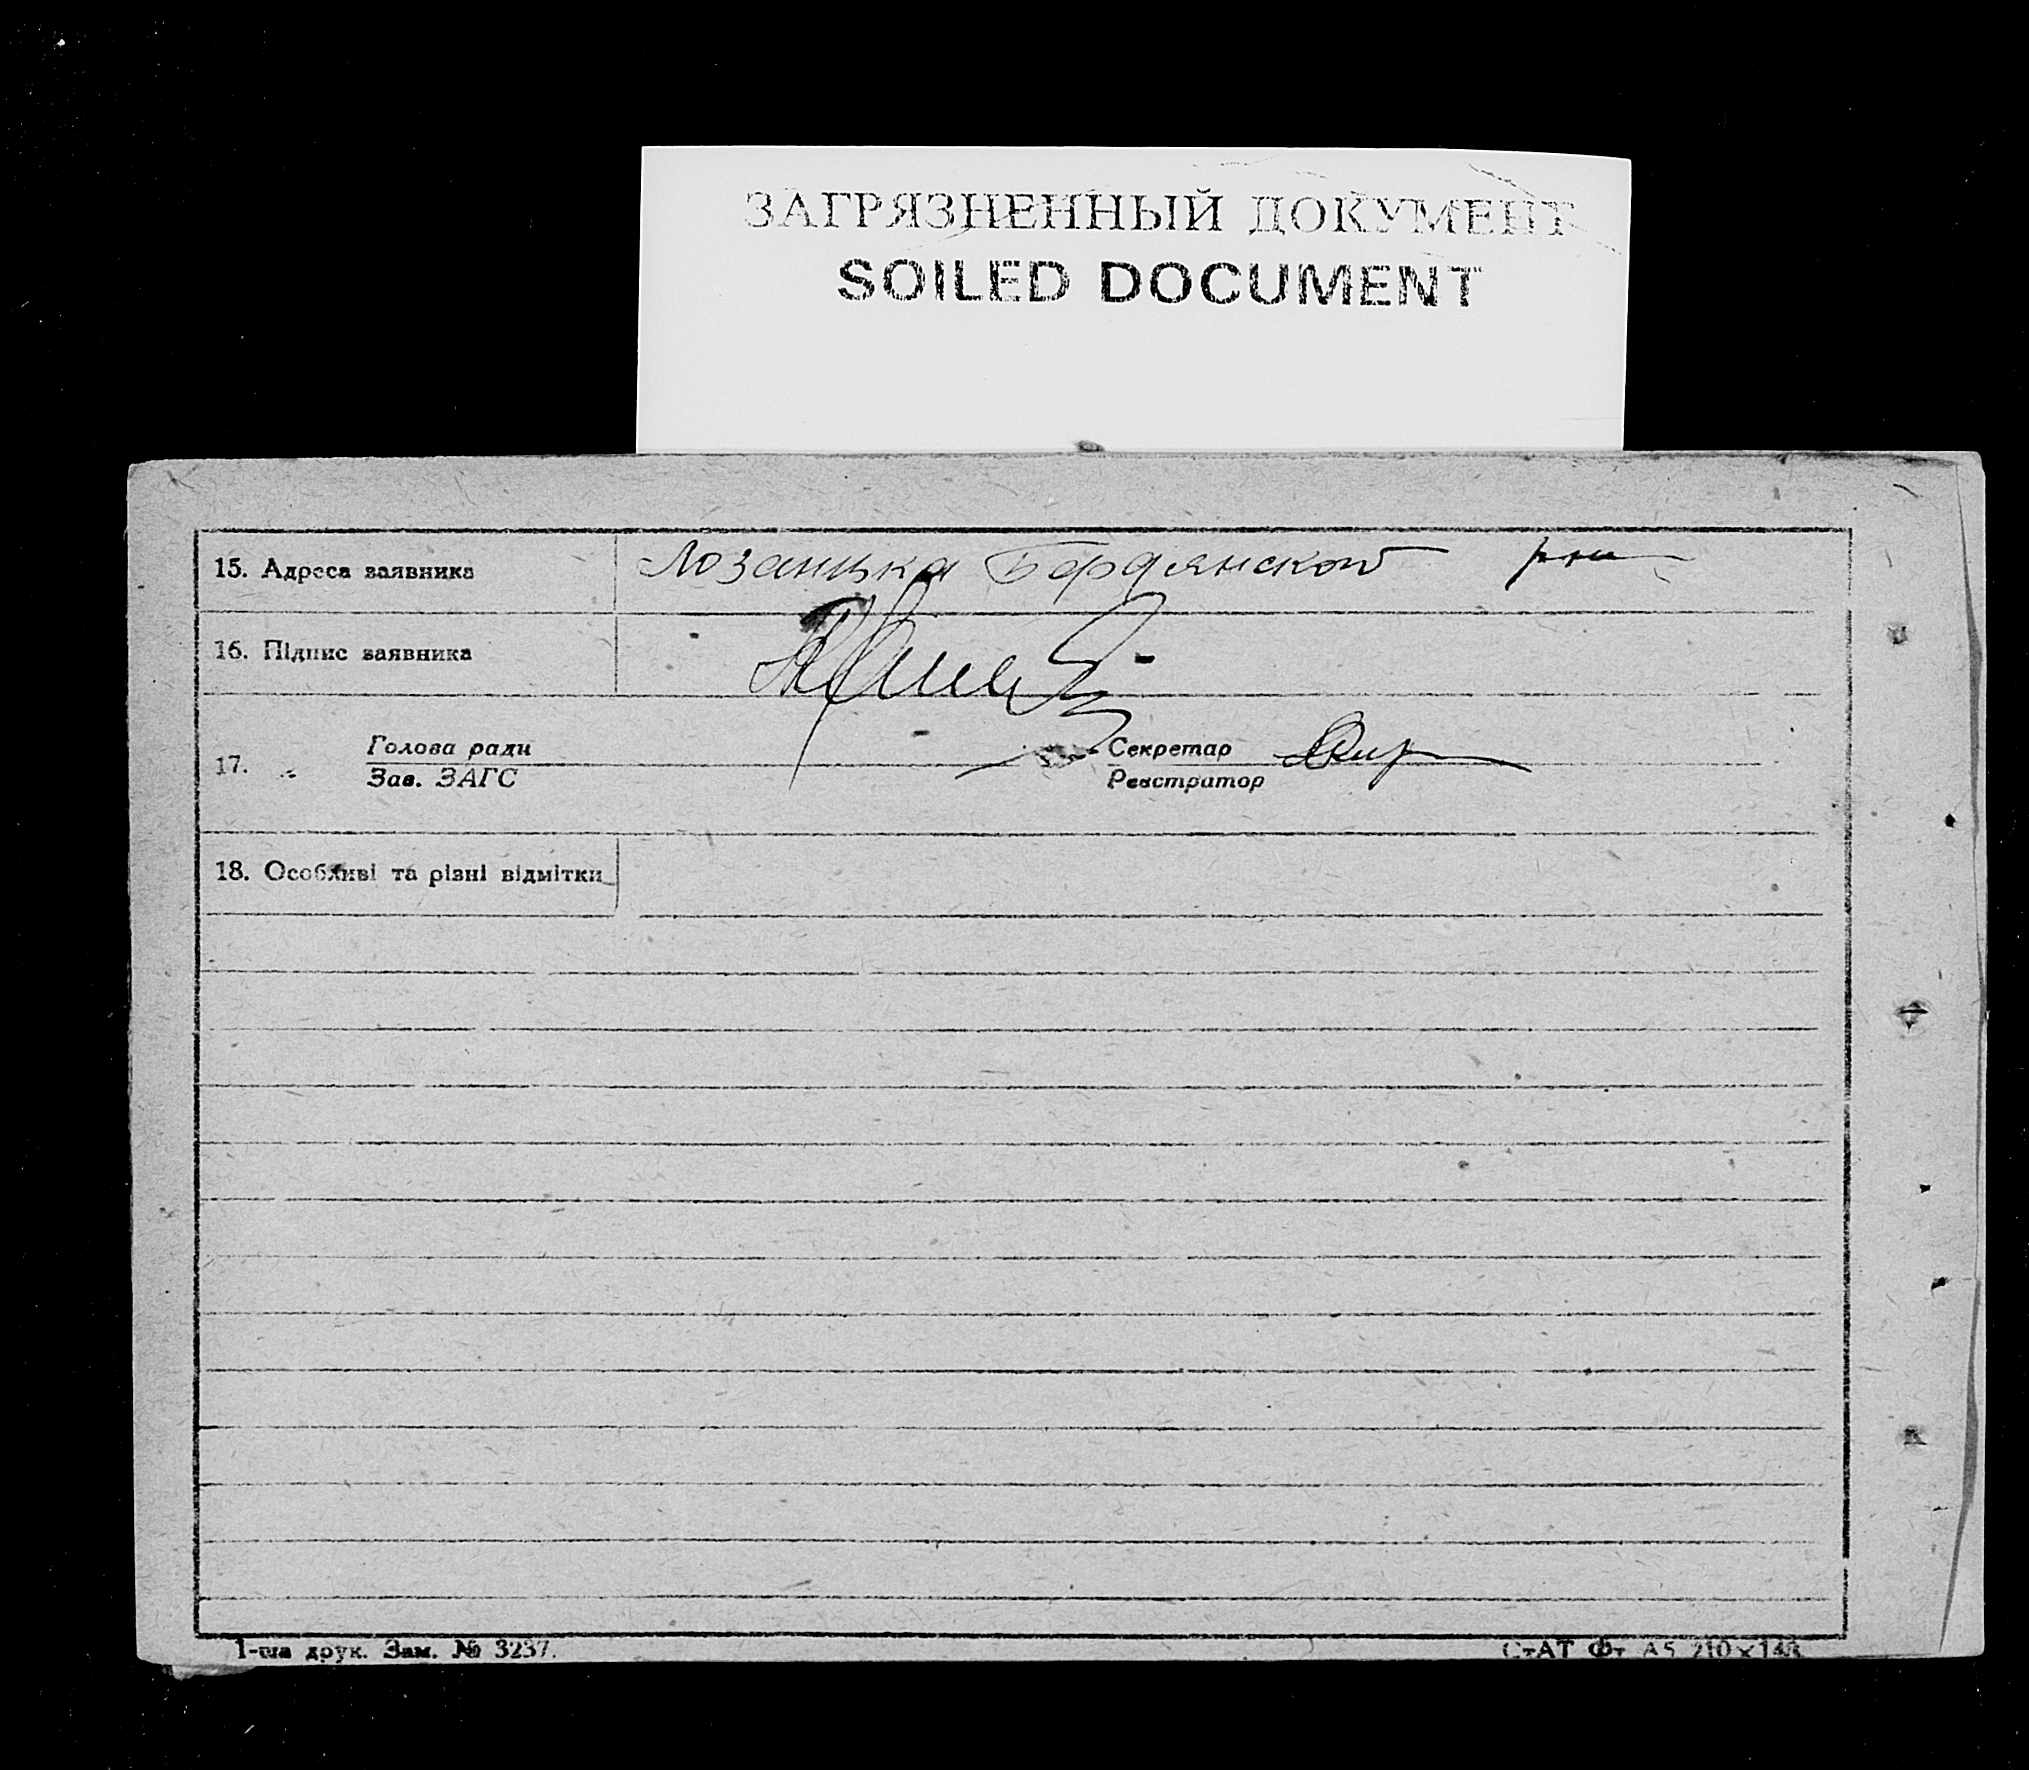 ЗАГРЯЗНЕННЫЙ ДОКУМЕНТ
SOILED DOCUMENT
15. Адреса заявника Лозанівка Бердянской р-на
16. Підпис заявника
17. Голова ради Секретар
Зав. ЗАГС Реєстратор
18. Особливі та різні відмітки
1-ша друк. Зам. № 3237. СтАТ Фт А5 210×148